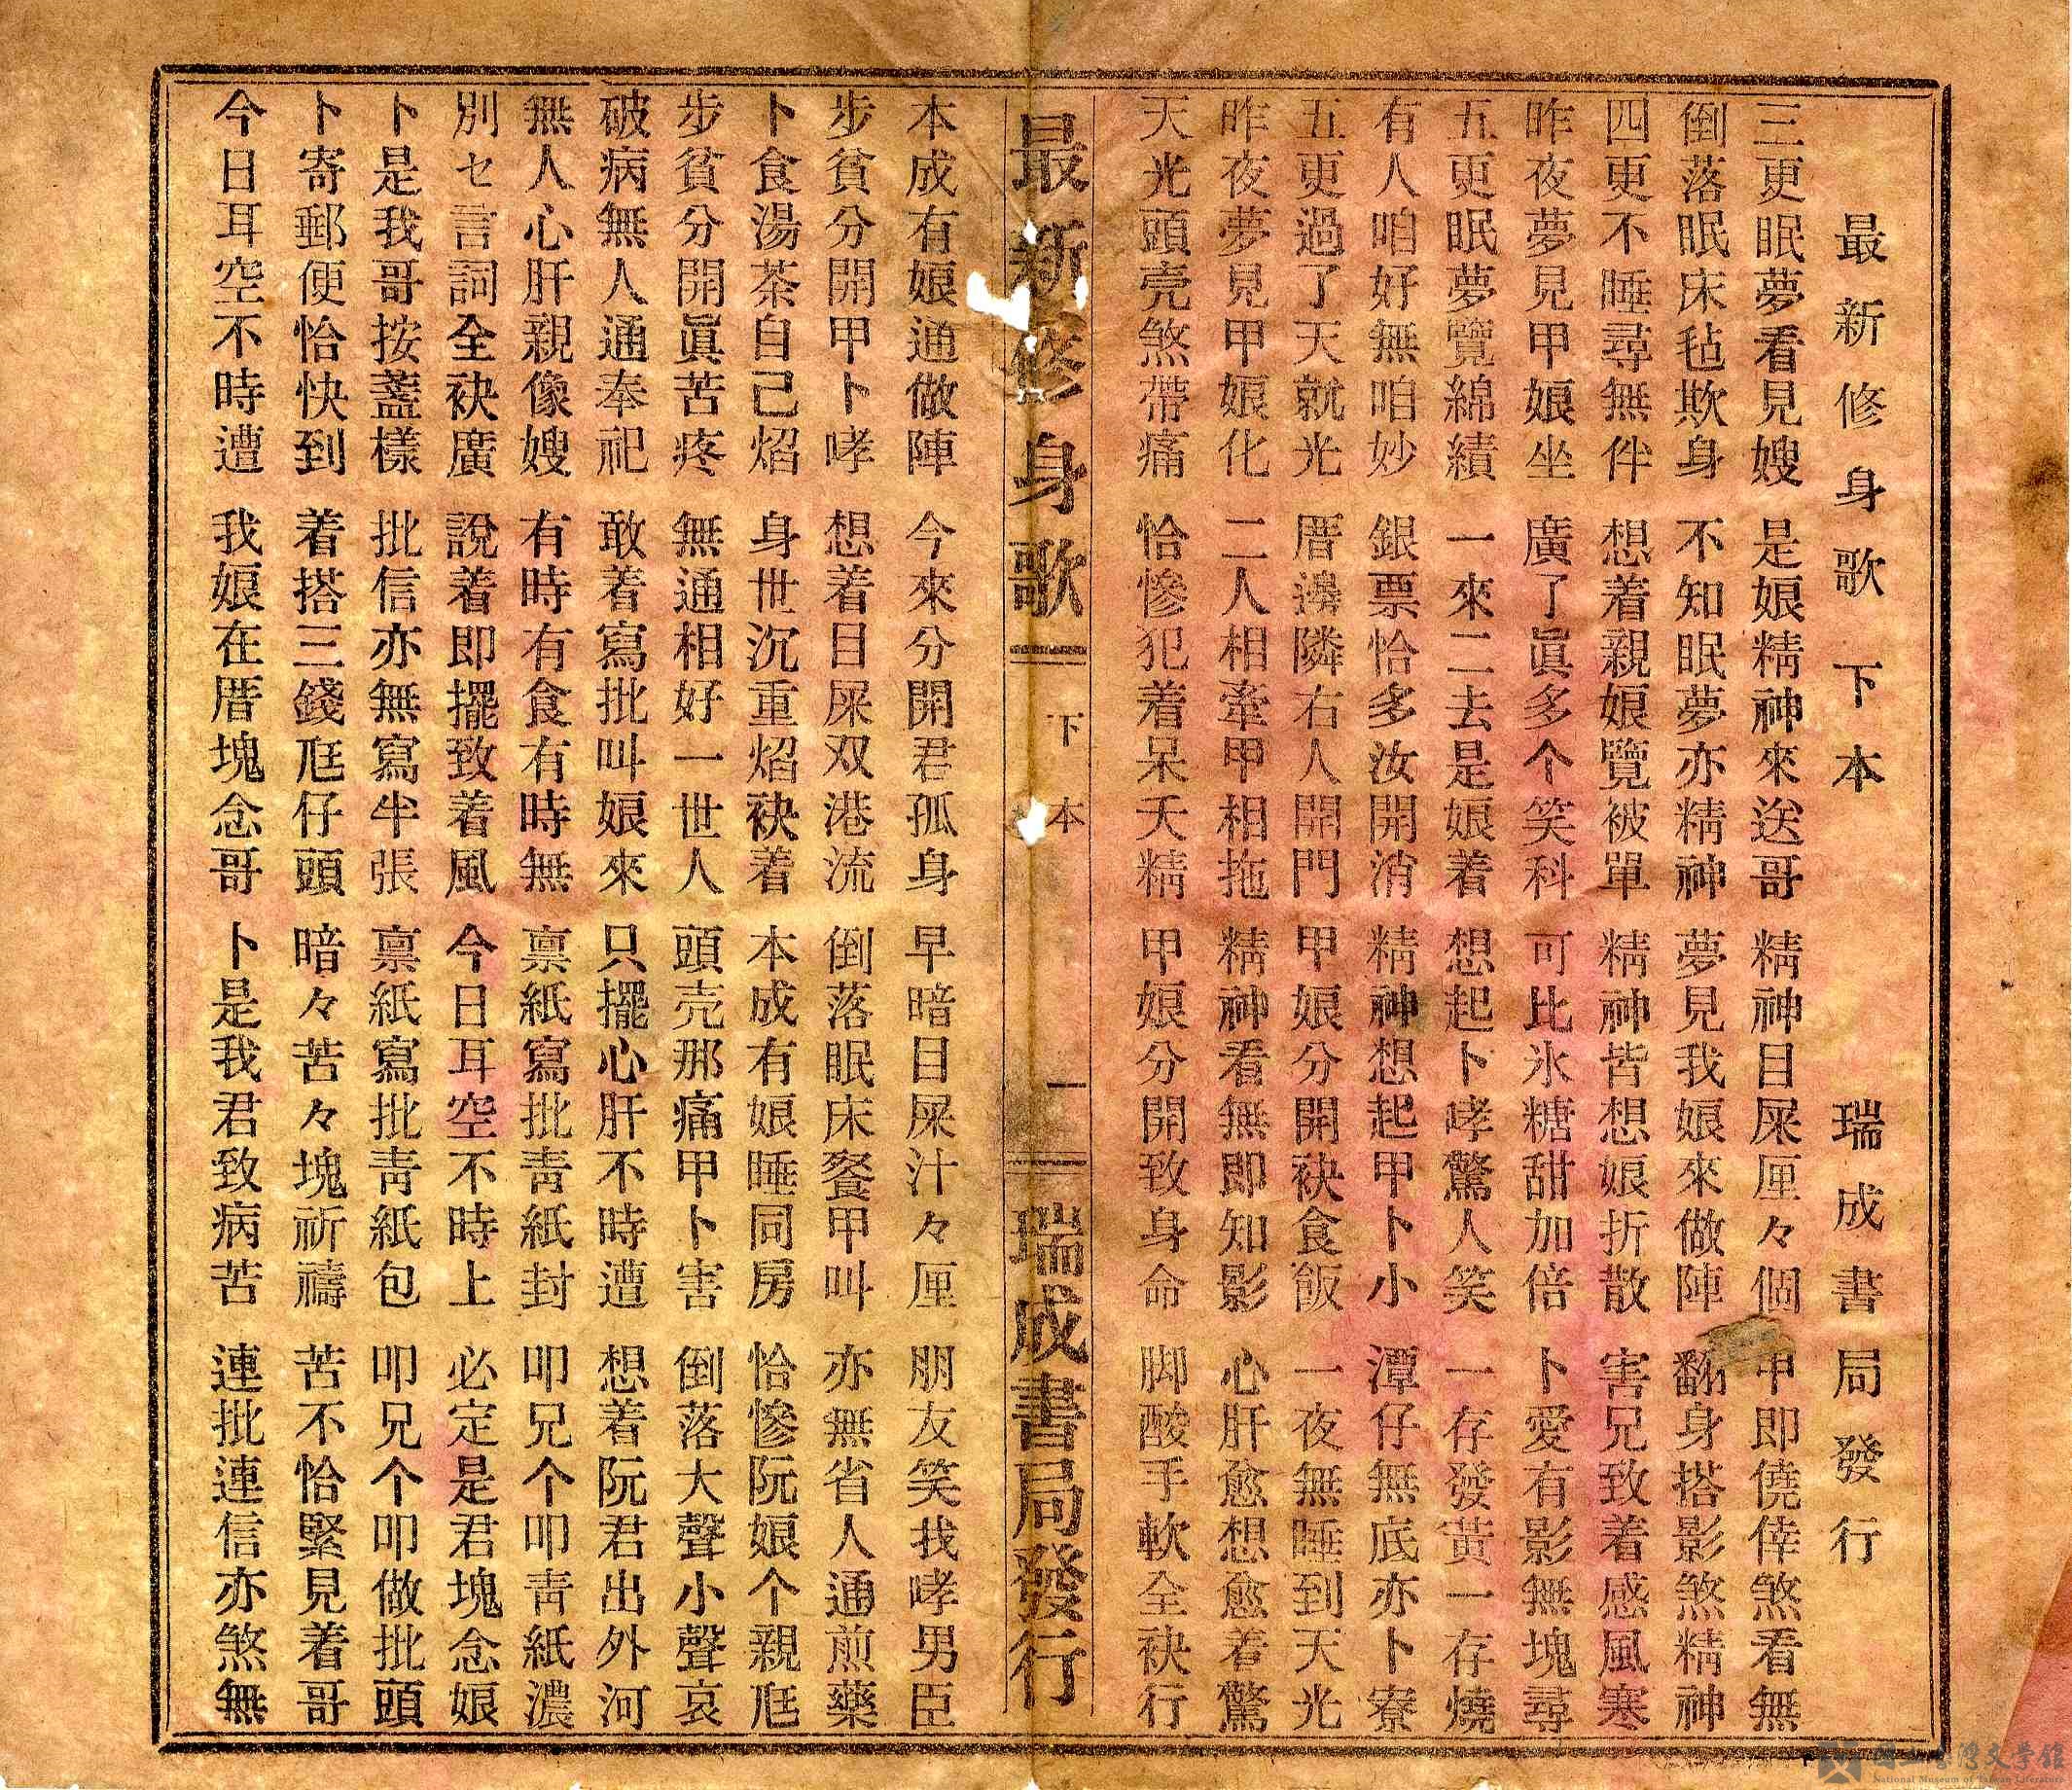 最新修身歌 下本 瑞成書局發行
三更眠夢看見嫂 是娘精神來送哥 精神目屎厘々個 甲即僥倖煞看無
倒落眠床毡欺身 不知眠夢亦精神 夢見我娘來做陣 翻身搭影煞精神
四更不睡尋無伴 想着親娘覽被單 精神皆想娘折散 害兄致着感風寒
昨夜夢見甲娘坐 廣了眞多个笑科 可比氷糖甜加倍 卜愛有影無塊尋
五更眠夢覽綿績 一來二去是娘着 想起卜哮驚人笑 一存發黃一存燒
有人咱好無咱妙 銀票恰多汝開消 精神想起甲卜小 潭仔無底亦卜寮
五更過了天就光 厝邊隣右人開門 甲娘分開袂食飯 一夜無睡到天光
昨夜夢見甲娘化 二人相牽甲相拖 精神看無即知影 心肝愈想愈着驚
天光頭壳煞帶痛 恰慘犯着呆夭精 甲娘分開致身命 脚酸手軟全袂行
最新修身歌 下本 一 瑞成書局發行
本成有娘通做陣 今來分開君孤身 早暗目屎汁々厘 朋友笑我哮男臣
步貧分開甲卜哮 想着目屎双港流 倒落眠床餐甲叫 亦無省人通煎藥
卜食湯茶自己焰 身世沉重焰袂着 本成有娘睡同房 恰慘阮娘个親尪
步貧分開眞苦疼 無通相好一世人 頭壳那痛甲卜害 倒落大聲小聲哀
破病無人通奉祀 敢着寫批叫娘來 只擺心肝不時遭 想着阮君出外河
無人心肝親像嫂 有時有食有時無 禀紙寫批靑紙封 叩兄个叩靑紙濃
別セ言詞全袂廣 說着即擺致着風 今日耳空不時上 必定是君塊念娘
卜是我哥按蓋樣 批信亦無寫半張 禀紙寫批靑紙包 叩兄个叩做批頭
卜寄郵便恰快到 着搭三錢尪仔頭 暗々苦々塊祈禱 苦不恰緊見着哥
今日耳空不時遭 我娘在厝塊念哥 卜是我君致病苦 連批連信亦煞無
國立臺灣文學館
National Museum of Taiwan Literature